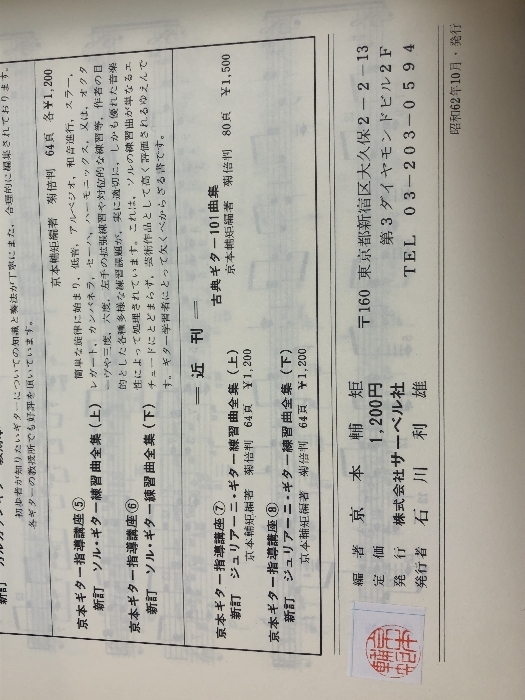 初歩者が知りたいギターについての知識と奏法が丁寧にまた、合理的に編集されております。
各ギターの教授所でも好評を頂いています。
京本輔矩編著 菊倍判 64頁 各¥1,200
京本ギター指導講座⑤
新訂 ソル・ギター練習曲全集(上)
京本ギター指導講座⑥
新訂 ソル・ギター練習曲全集(下)
簡単な旋律に始まり、低音、アルペジオ、和音進行、スラー、
レガート、カンパネラ、セーハ、ハーモニックス、又は、オクタ
ーヴや三度、六度、左手の拡張練習や対位的な練習等、作者の目
的とした各種多様な練習課題が、実に適切に、しかも優れた音楽
性によって処理されています。これは、ソルの練習曲が単なるエ
チュードにとどまらず、芸術作品として高く評価されるゆえんで
す。ギター学習者にとって欠くべからざる書です。
近刊
京本ギター指導講座⑦
新訂 ジュリアーニ・ギター練習曲全集(上)
京本輔矩編著 菊倍判 64頁 ¥1,200
京本ギター指導講座⑧
新訂 ジュリアーニ・ギター練習曲全集(下)
京本輔矩編著 菊倍判 64頁 ¥1,200
古典ギター101曲集
京本輔矩編著 菊倍判 80頁 ¥1,500
編著 京本輔矩
定価 1,200円
発行 株式会社サーベル社
発行者 石川利雄
〒160 東京都新宿区大久保2-2-13
第3ダイヤモンドビル2F
TEL 03-203-0594
昭和62年10月・発行